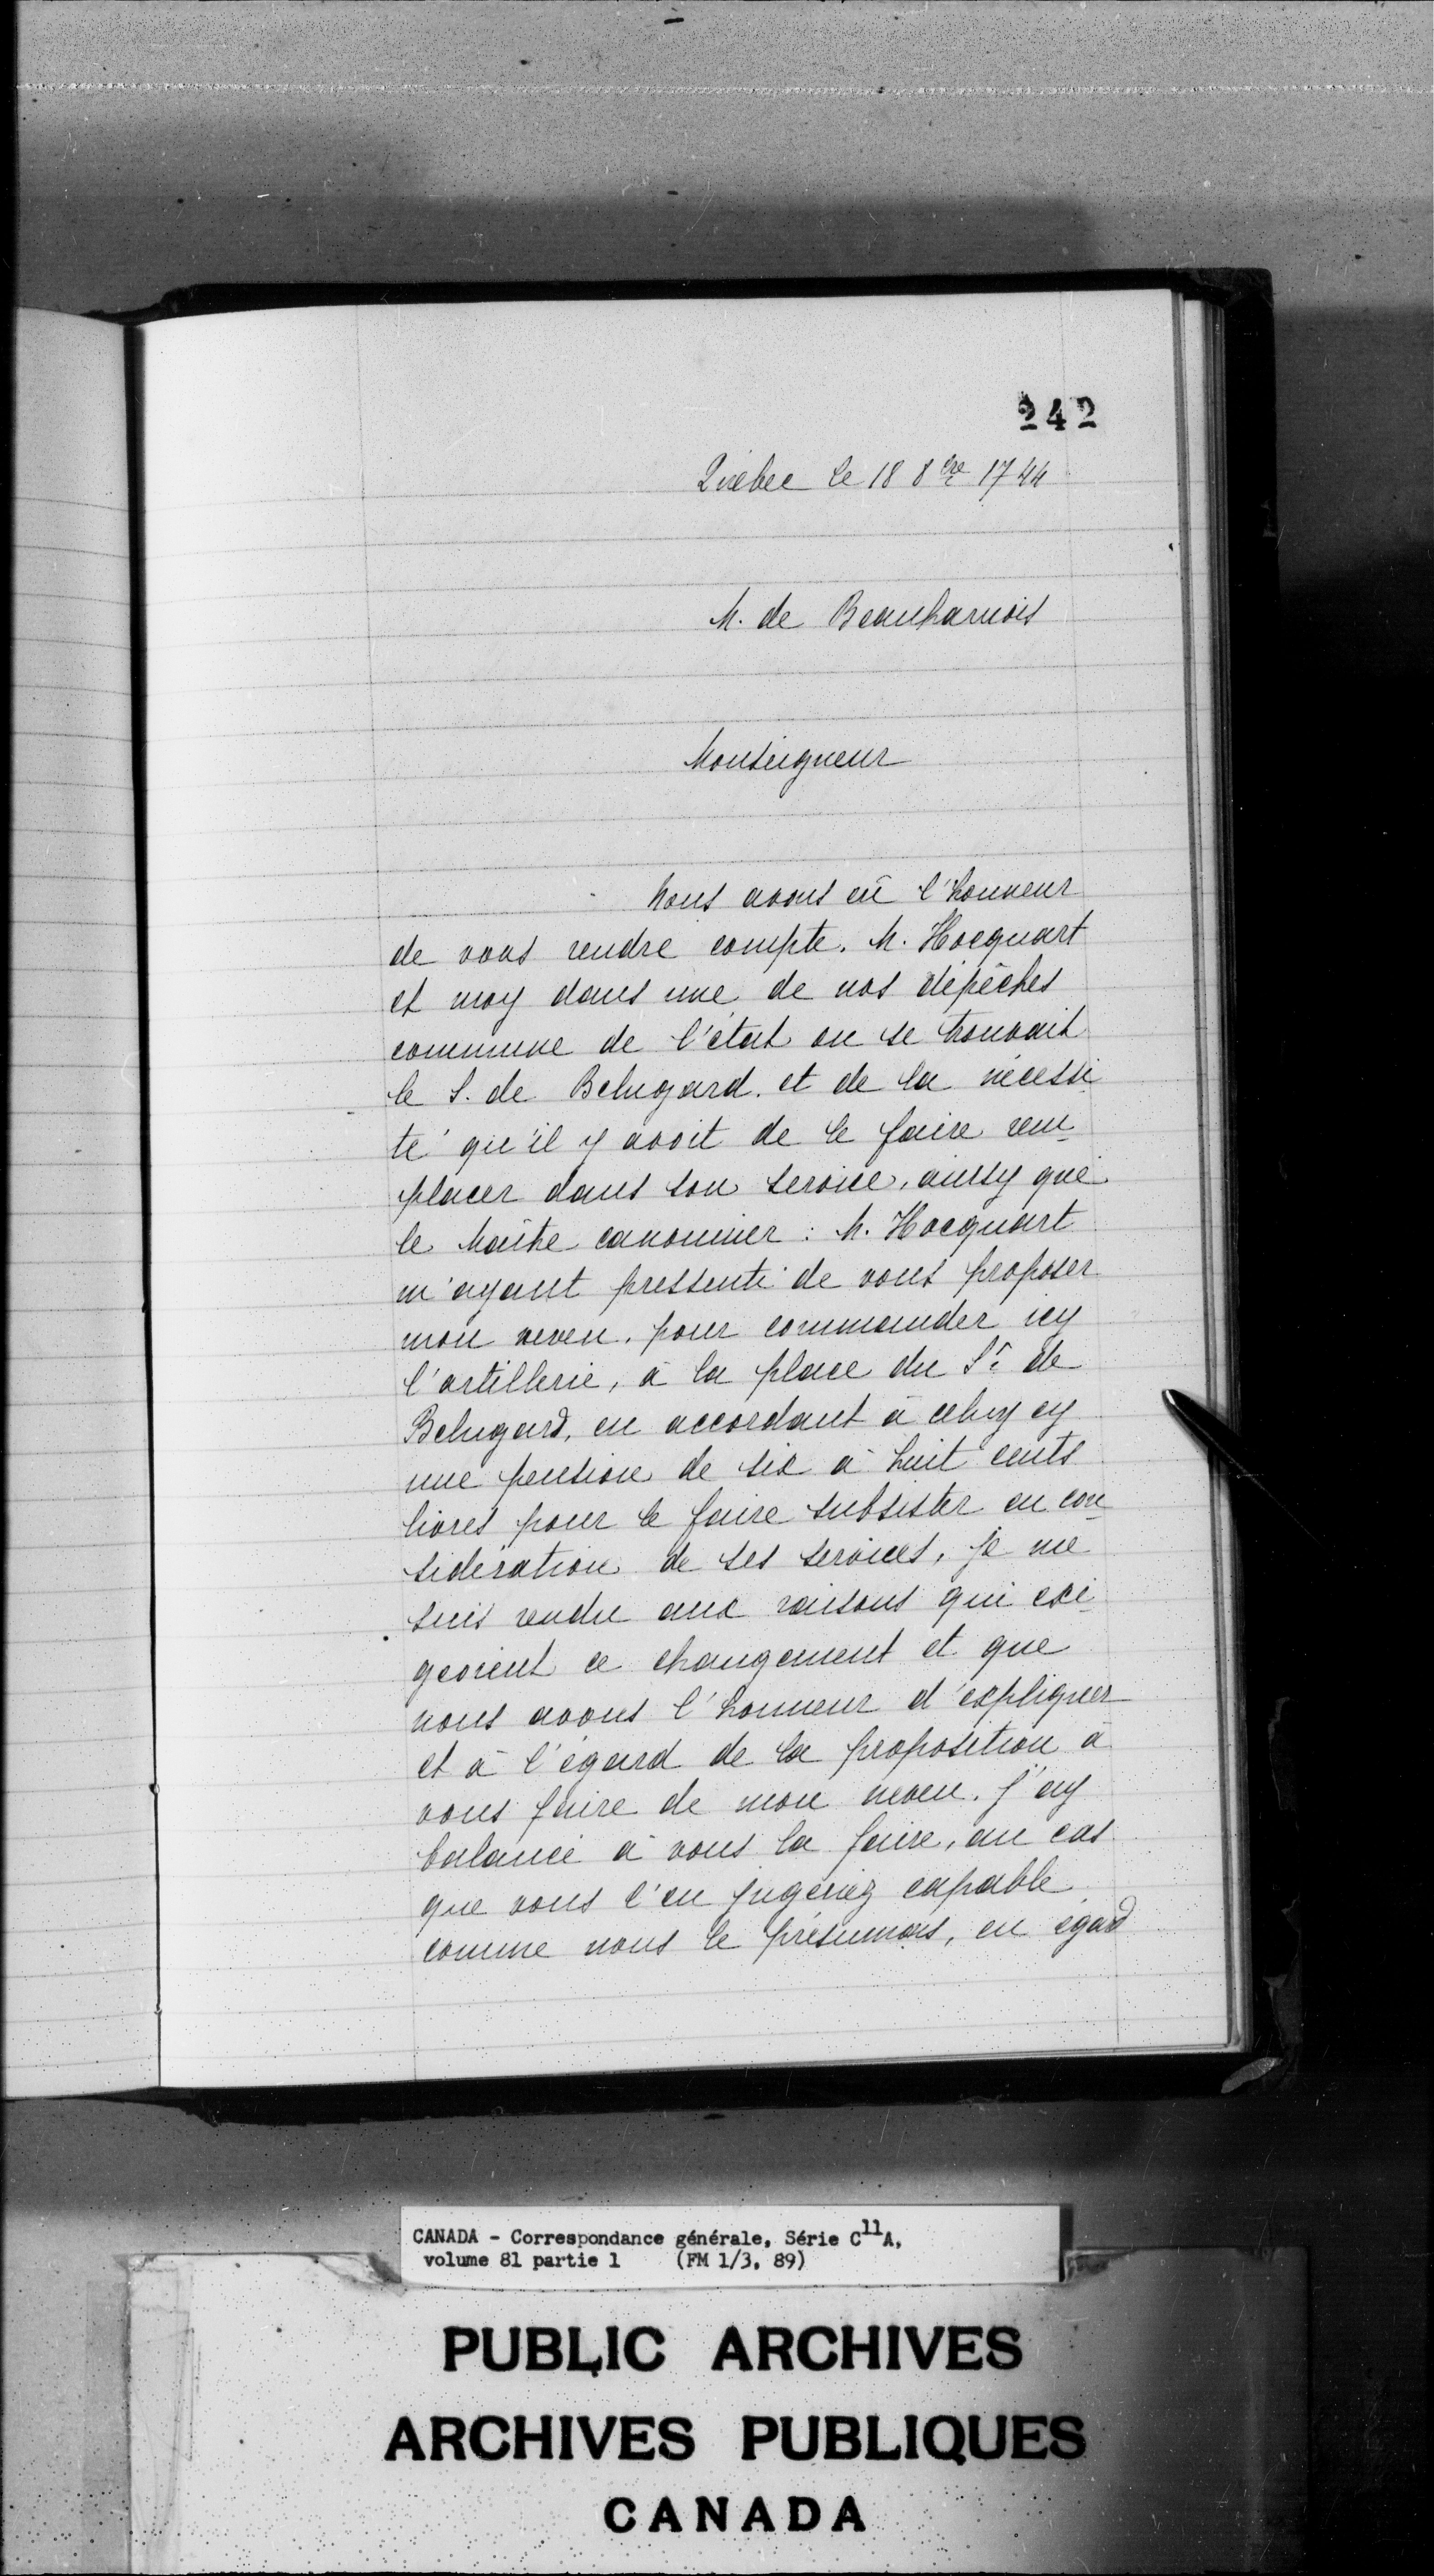 242
Québec le 18 8bre 1744
M. de Beauharnois
Monseigneur
Nous avons eû l'honneur
de vous rendre compte, M. Hocquart
et moy dans une de nos dépêches
commune de l'état ou se trouvait
le S. de Belugard. et de la nécessi
té qu'il y avoit de le faire rem-
placer dans son service, ainsy que
le Maître canonnier : M. Hocquart
m'ayant pressenti de vous proposer
mon neveu. pour commander icy
l'artillerie, à la place du Sr de
Belugard, en accordant à celuy cy
une pension de six à huit cents
livres pour le faire subsister en con-
sidération de ses services, je me
suis rendu aux raisons qui exi-
geoient ce changement et que
nous avons l'honneur d'expliquer
et à l'égard de la proposition à
vous faire de mon neveu. j'ay
balancé à vous la faire, au cas
que vous l'en jugeriez capable
comme nous le présumons, eu égard
CANADA - Correspondance générale, Série C11A,
volume 81 partie 1 (FM 1/3, 89)
PUBLIC ARCHIVES
ARCHIVES PUBLIQUES
CANADA